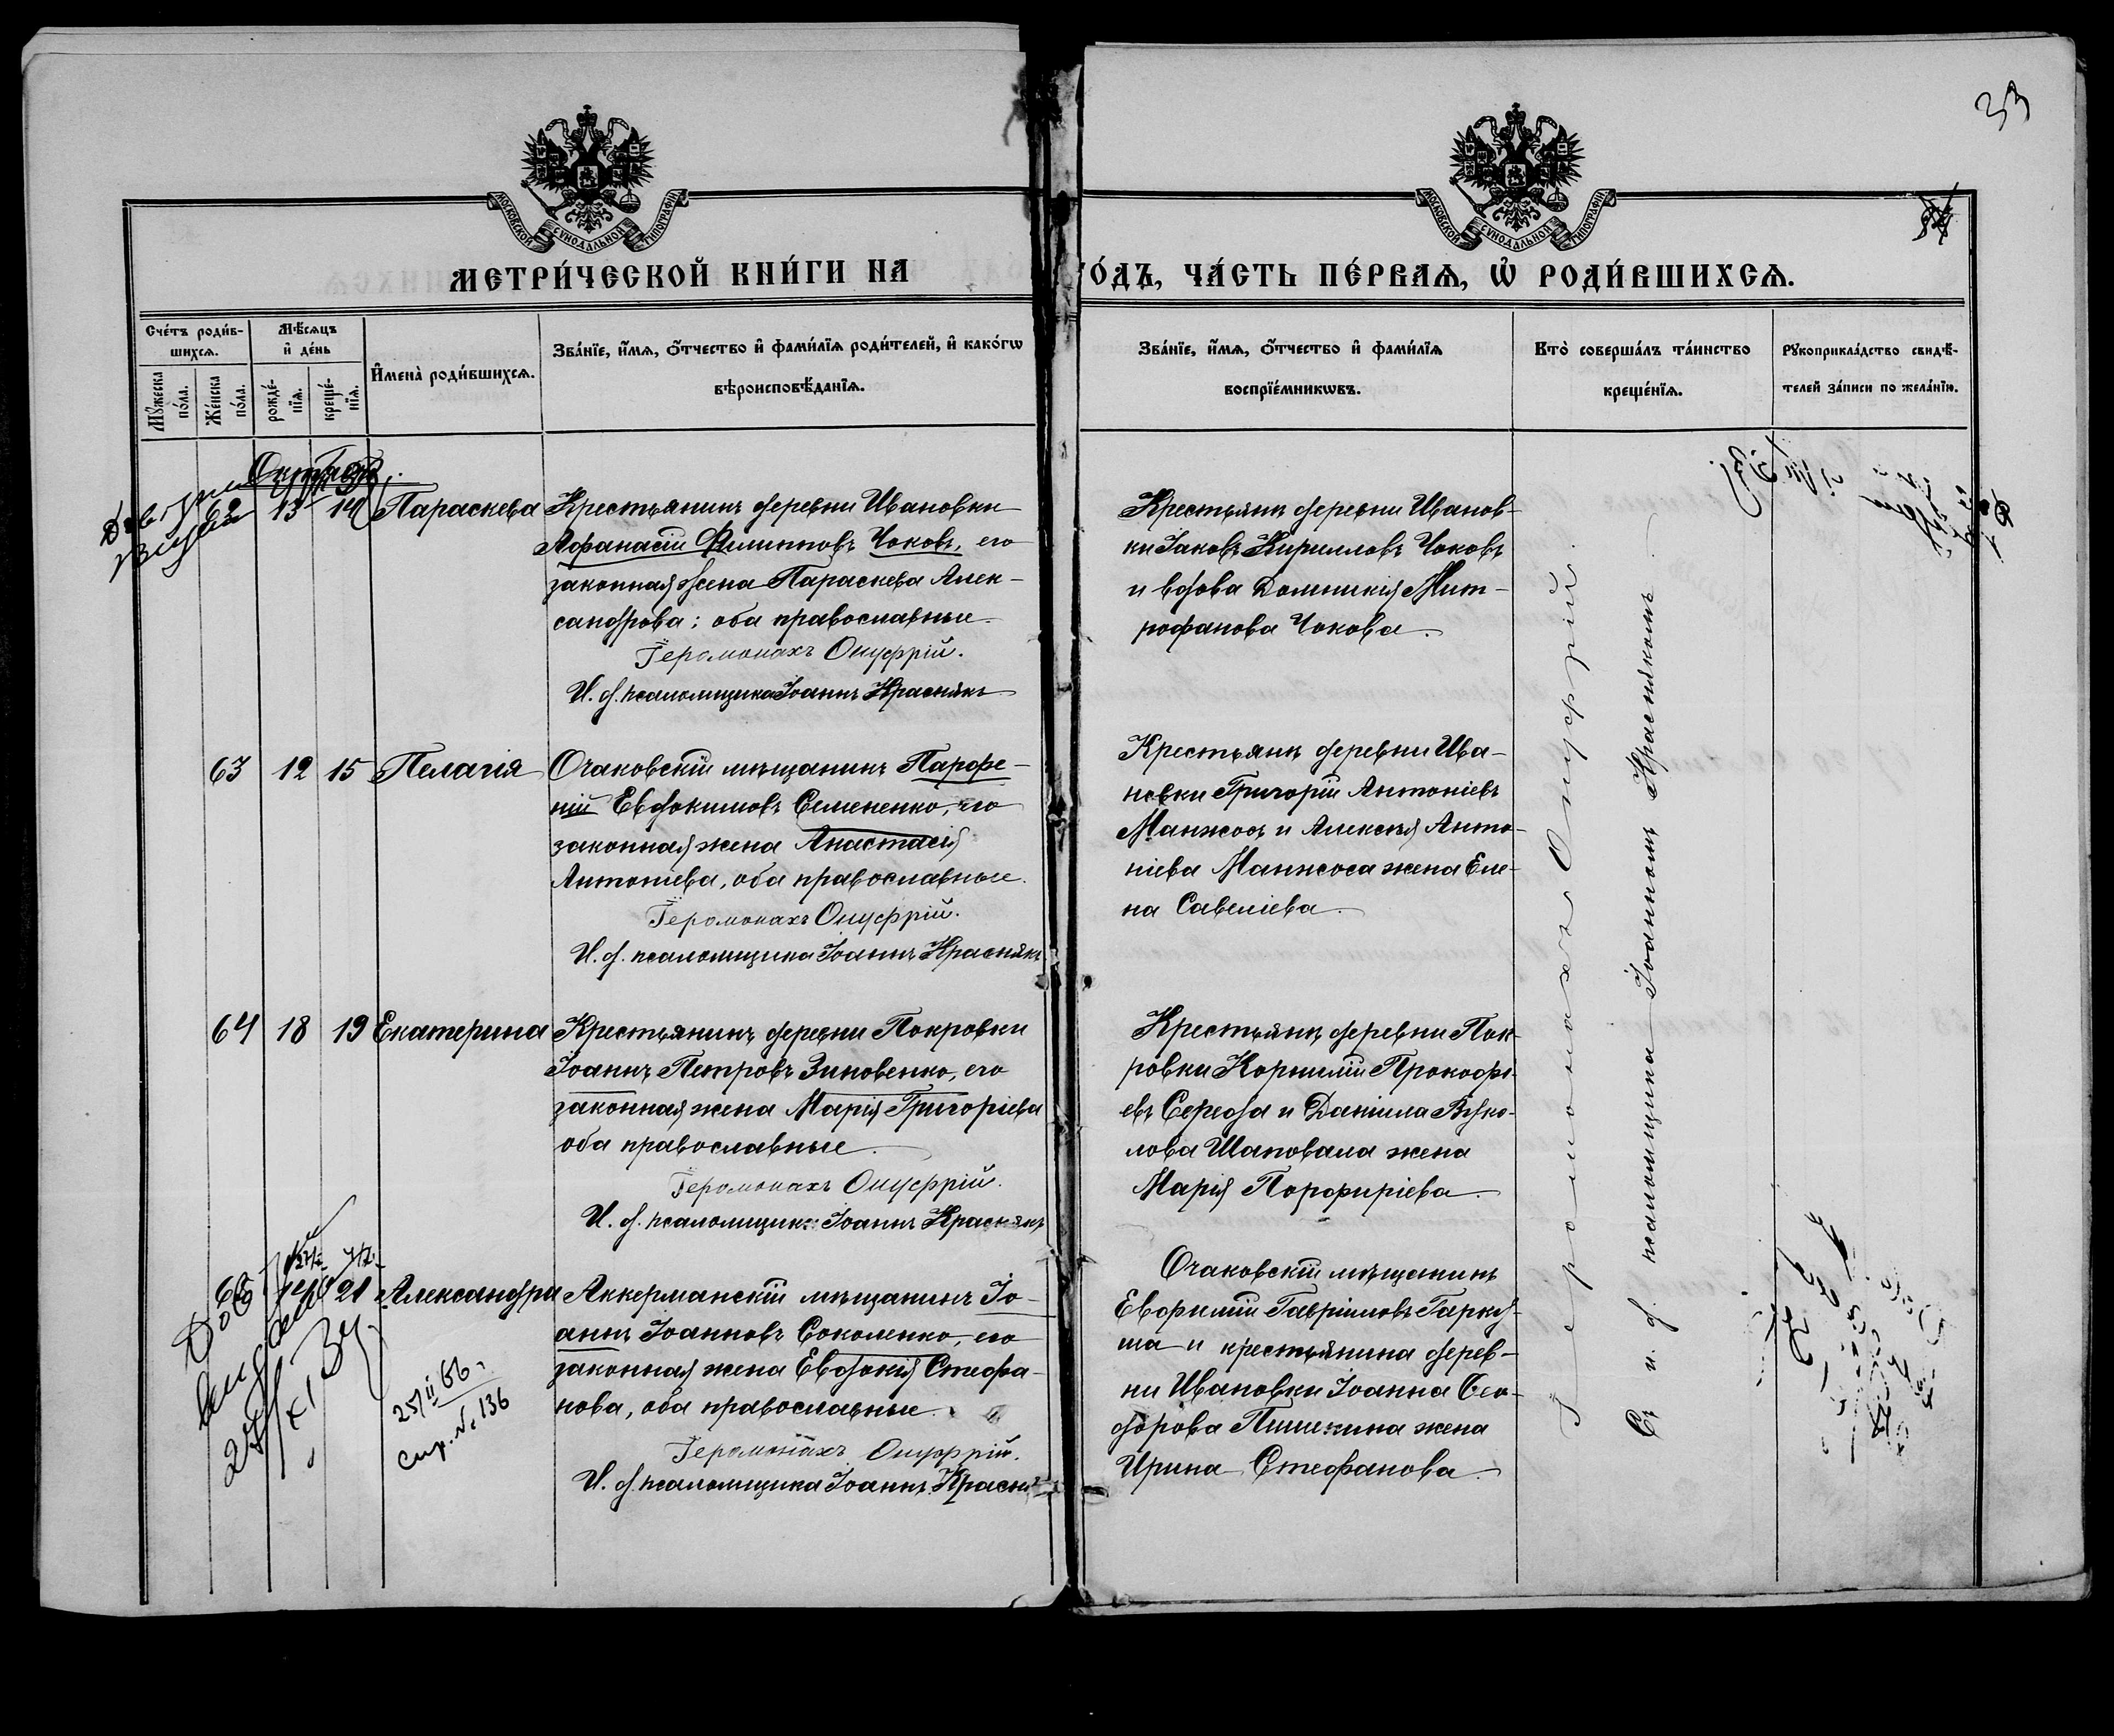 33
МОСКОВСКОЙ СѴНОДАЛЬНОЙ ТИПОГРАФІИ
МОСКОВСКОЙ СѴНОДАЛЬНОЙ ТИПОГРАФІИ
МЕТРИ́ЧЕСКОЙ КНИ́ГИ НА
ГО́ДЪ, ЧА́СТЬ ПЕ́РВАѦ, Ѽ РОДИ́ВШИХСѦ.
Сче́тъ роди́в-
шихсѧ.
Мꙋ́жеска по́ла.
Же́нска по́ла.
Мѣ́сѧцъ
и҆ де́нь
рожде́-
нїѧ.
креще́-
нїѧ.
И҆мена̀ роди́вшихсѧ.
Зва́нїе, и҆́мѧ, ѻ҆́тчество и҆ фами́лїѧ роди́телей, и҆ како́гѡ
вѣроисповѣ́данїѧ.
Зва́нїе, и҆́мѧ, ѻ҆́тчество и҆ фами́лїѧ
воспрїе́мникѡвъ.
Кто̀ соверша́лъ та́инство
креще́нїѧ.
Рꙋкоприкла́дство свидѣ́-
телей за́писи по жела́нїю.
Октябрь.
62 13 14 Параскева
Крестьянинъ деревни Ивановки
Афанасій Филипповъ Чоковъ, его
законная жена Параскева Алек-
сандрова; оба православные.
Іеромонахъ Онуфрій.
И. д. псаломщика Іоаннъ Краснякъ
Крестьянъ деревни Иванов-
ки Іаковъ Кирилловъ Чоковъ
и вдова Домникія Мит-
рофанова Чокова.
63 12 15 Пелагія
Очаковскій мѣщанинъ Парфе-
ній Евдокимовъ Семененко, его
законная жена Анастасія
Антоніева, оба православные.
Іеромонахъ Онуфрій.
И. д. псаломщика Іоаннъ Краснякъ
Крестьянъ деревни Ива-
новки Григорій Антоніевъ
Манжосъ и Алексѣя Анто-
ніева Манжоса жена Еле-
на Савеліева.
64 18 19 Екатерина
Крестьянинъ деревни Покровки
Іоаннъ Петровъ Зиновенко, его
законная жена Марія Григоріева
оба православные.
Іеромонахъ Онуфрій.
И. д. псаломщика Іоаннъ Краснякъ
Крестьянъ деревни Пок-
ровки Корнилій Прокофі-
евъ Середа и Даніила Вуко-
лова Шаповала жена
Марія Порфиріева.
65 21 Александра
Аккерманскій мѣщанинъ Іо-
аннъ Іоанновъ Соколенко, его
законная жена Евдокія Стефа-
нова, оба православные.
Іеромонахъ Онуфрій.
И. д. псаломщика Іоаннъ Красня
Очаковскій мѣщанинъ
Евфимій Гавріиловъ Гарку-
ша и крестьянина дерев-
ни Ивановки Іоанна Ѳео-
дорова Пшикина жена
Ирина Стефанова.
25/II 66.
спр. № 136
Іеромонахъ Онуфрій.
Съ и. д. псаломщика Іоанномъ Краснякомъ.